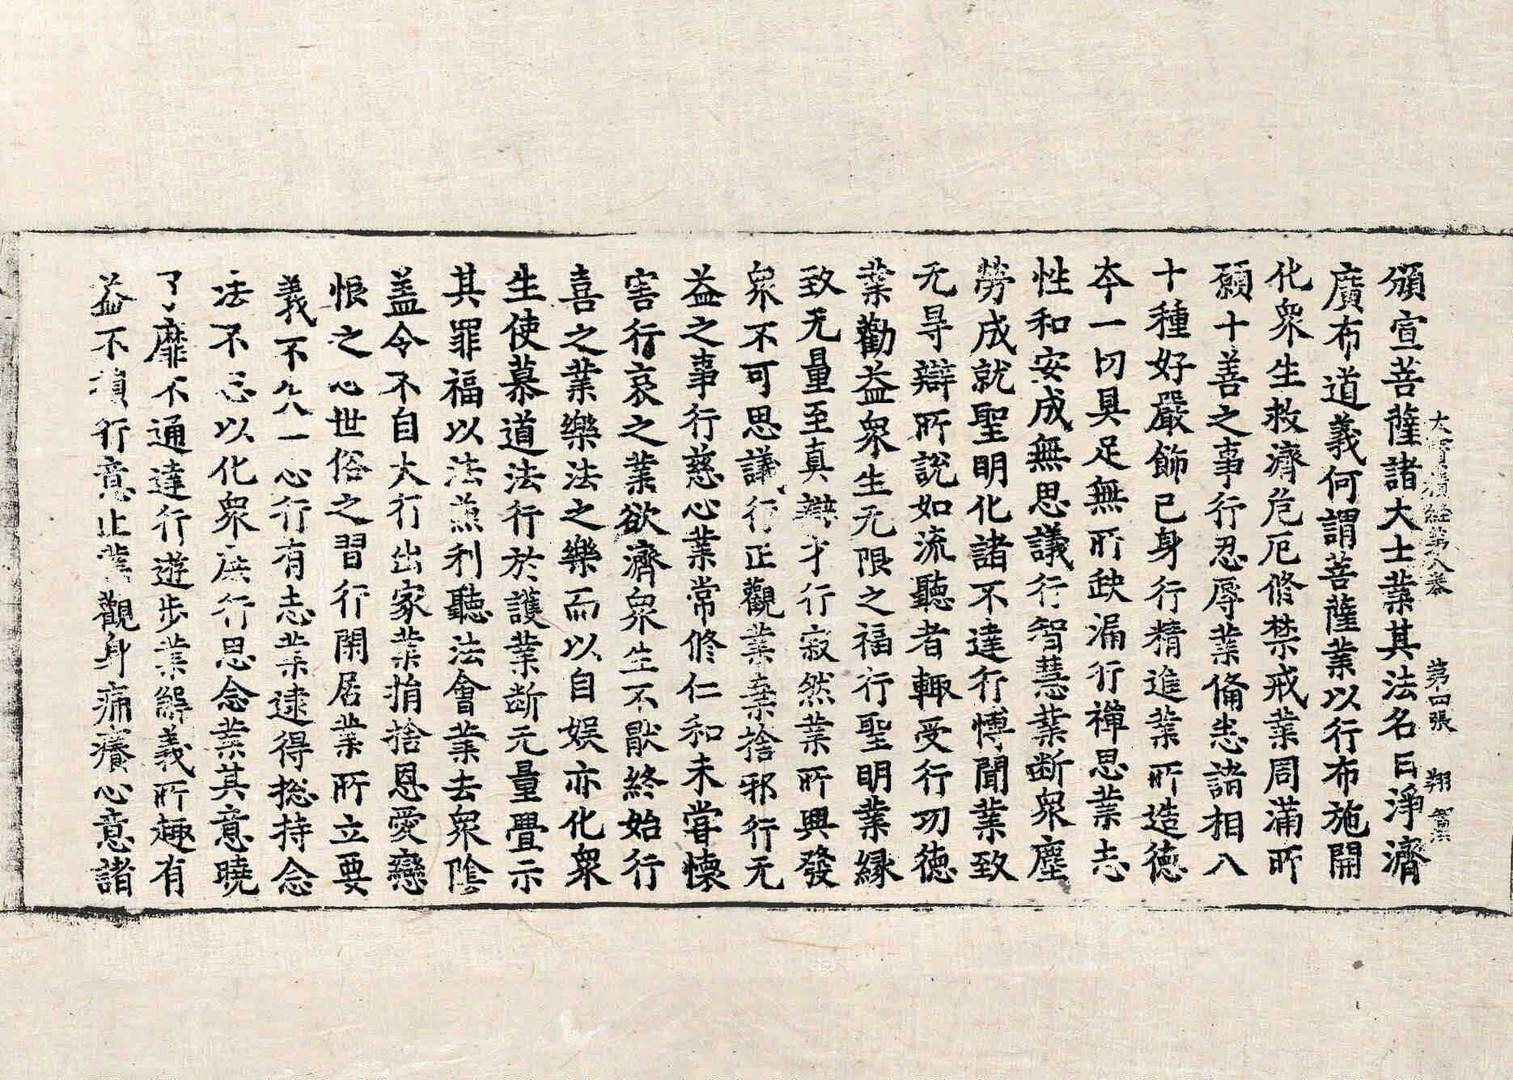 大寶積經第八卷　第四張　翔
頒宣菩薩諸大士業其法名曰淨濟
廣布道義何謂菩薩業以行布施開
化衆生救濟危厄修禁戒業周滿所
願十善之事行忍辱業俻悉諸相八
十種好嚴飾已身行精進業所造德
夲一切具足無所缺漏行禪思業志
性和安成無思議行智慧業断衆塵
勞成就聖明化諸不達行愽聞業致
无㝵辯所說如流聽者輙受行功德
業勸益衆生无限之福行聖明業縁
致无量至真辯才行寂然業所興發
衆不可思議行正觀業棄捨邪行无
益之事行慈心業常修仁和未甞懷
害行哀之業欲濟衆生不猒終始行
喜之業樂法之樂而以自娱亦化衆
生使慕道法行於護業断无量疊示
其罪福以法𠃔利聽法會業去衆陰
盖令不自大行出家業捐捨恩愛戀
恨之心世俗之習行閑居業所立要
義不 一心行有志業逮得捴持念
法不忘以化衆庶行思念業其意曉
了靡不通達行遊步業觧義所趣有
益不損行意止業觀身痛癢心意諸